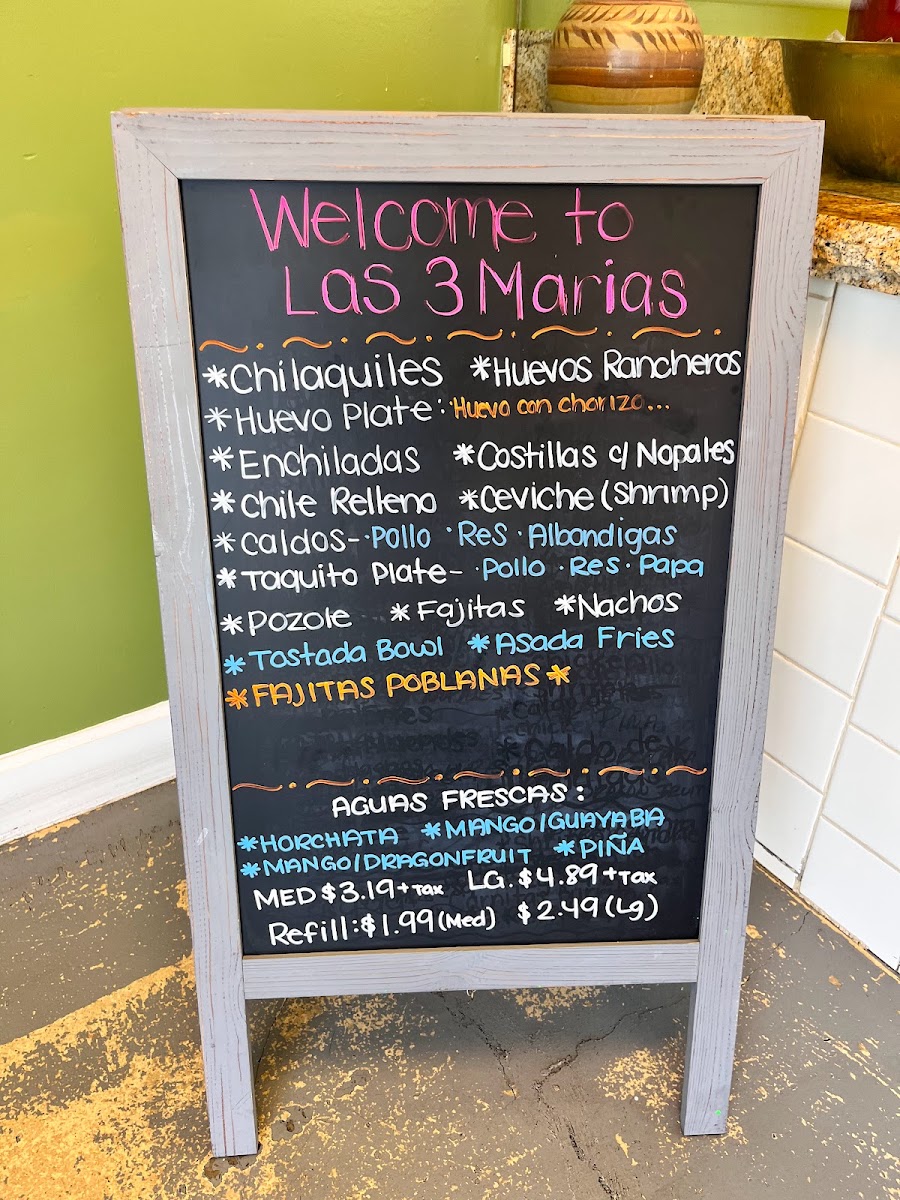 Welcome to
Las 3 Marias
*Chilaquiles *Huevos Rancheros
*Huevo Plate: ·Huevo con chorizo...
*Enchiladas *Costillas c/ Nopales
*Chile Relleno *Ceviche (Shrimp)
*Caldos- ·Pollo ·Res ·Albondigas
*Taquito Plate- ·Pollo ·Res ·Papa
*Pozole *Fajitas *Nachos
*Tostada Bowl *Asada Fries
*FAJITAS POBLANAS*
AGUAS FRESCAS:
*HORCHATA *MANGO/GUAYABA
*MANGO/DRAGONFRUIT *PIÑA
MED $3.19+Tax LG. $4.89+Tax
Refill: $1.99 (Med) $2.49 (Lg)